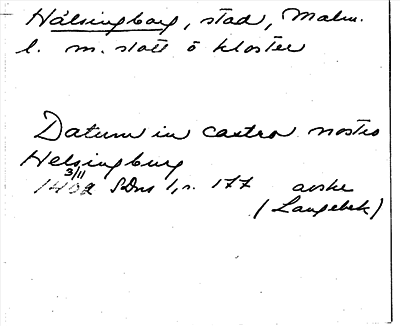 Hälsingborg, stad, Malm.
l. m. slott o kloster
Datum in castro nostro
Helsingburg
3/11
1402 SDns 1, n. 177 avskr
(Langebek)